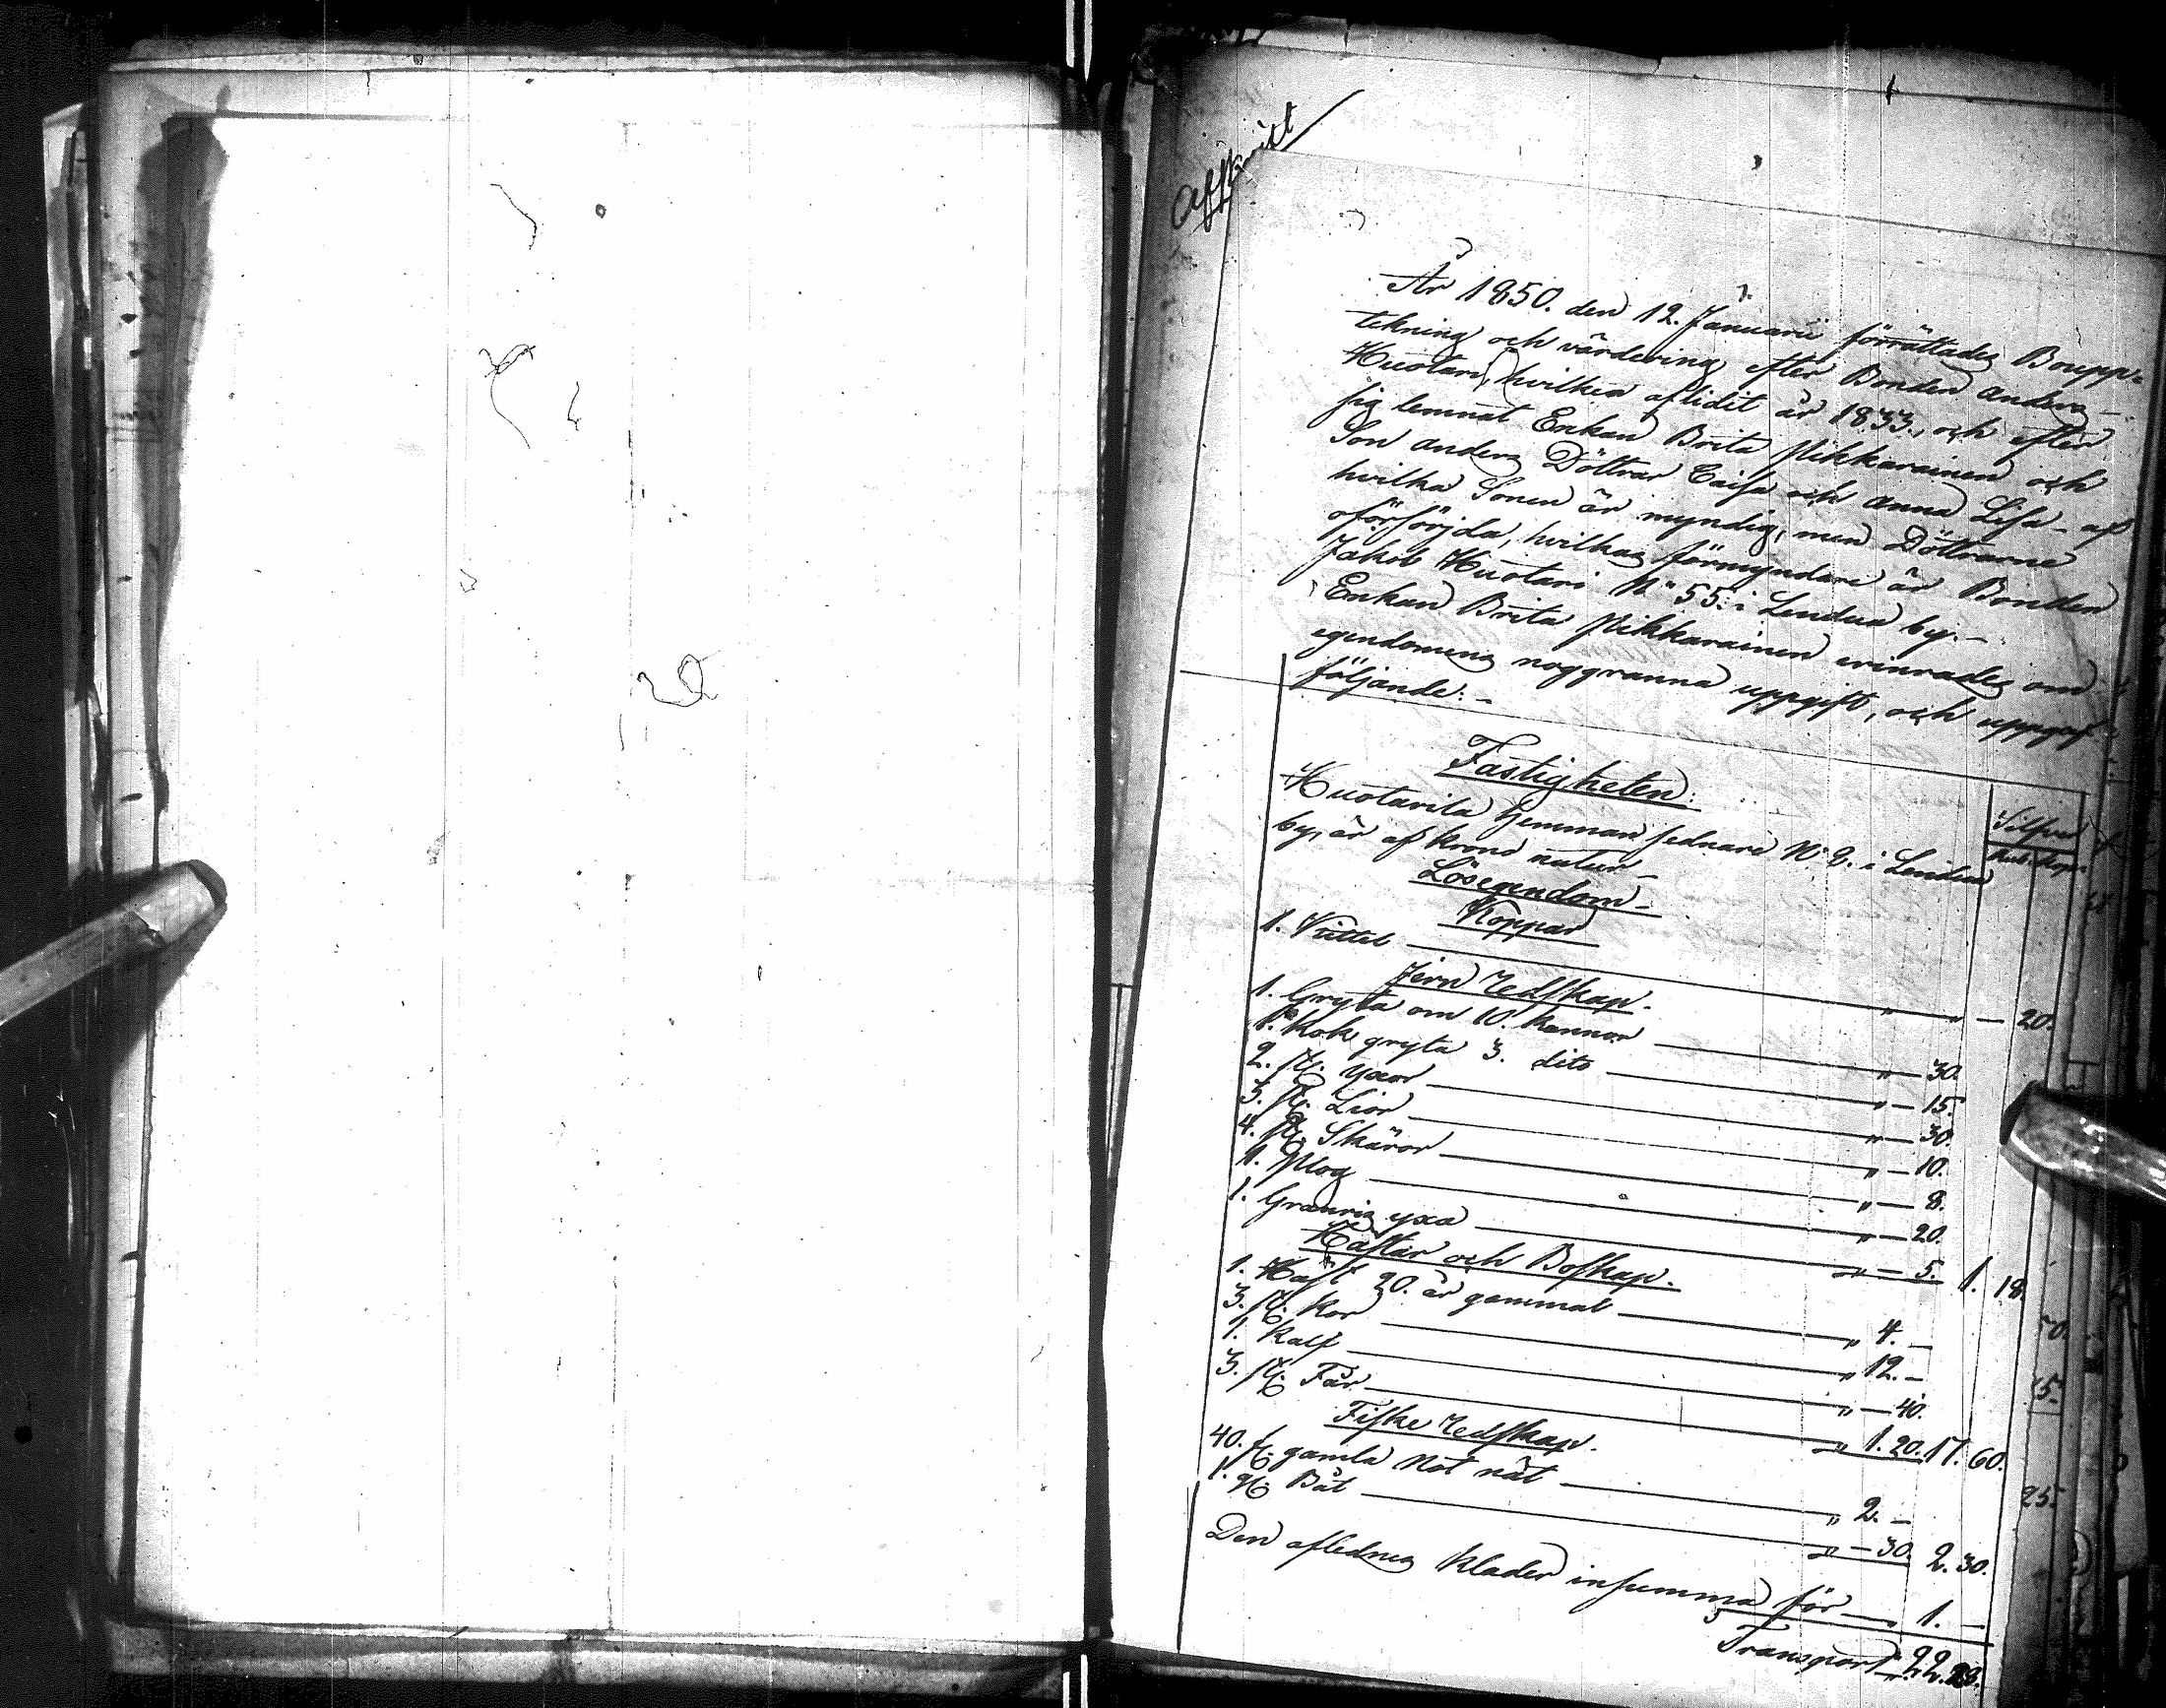 Afskrift
År 1850. den 12. Januarii förrättades Boupp=
tekning och värdering efter Bonden Anders
Huotari, hvilken aflidit år 1833., och efter
sig lemnat Enkan Brita Mikkarainen och
Son Anders Döttrar Caisa och Anna Lisa - af
hvilka Sonen är myndig, men Döttrarne
oförsörjda, hvilkas förmyndare är Bonden
Jakob Huotari No 55. i Lendua by. -
Enkan Brita Mikkarainen erinrades om
egendomens noggranna uppgift, och uppgaf
följande: -
Fastigheten:
Silfver
Rub. Kop.
Huotarila hemman sednare No 2. i Lendua
by, är af Krono natur -
Lösegendom -
Koppar
1. Kittel — " " — 20.
Jern Redskap.
1. Gryta om 10. Kannor — " — 30.
1. Kok gryta 3. dito — " — 15.
2. st. yxor — " — 30.
3. st. Lior — " — 10.
4. st. Skäror — " — 8.
1. Plog — " — 20.
1. Granris yxa — " — 5. 1. 18.
Hästar och Boskap.
1. Häst 20. år gammal — " 4. —
3. st. Kor — " 12. —
1. Kalf — " — 40.
3. st. Får — " 1. 20. 17. 60.
Fiske Redskap.
40. st. gamla Not nät — " 2. —
1. st. Båt — " — 30. 2. 30.
Den aflednes Kläder insumma för — 1. —
Transport 22.